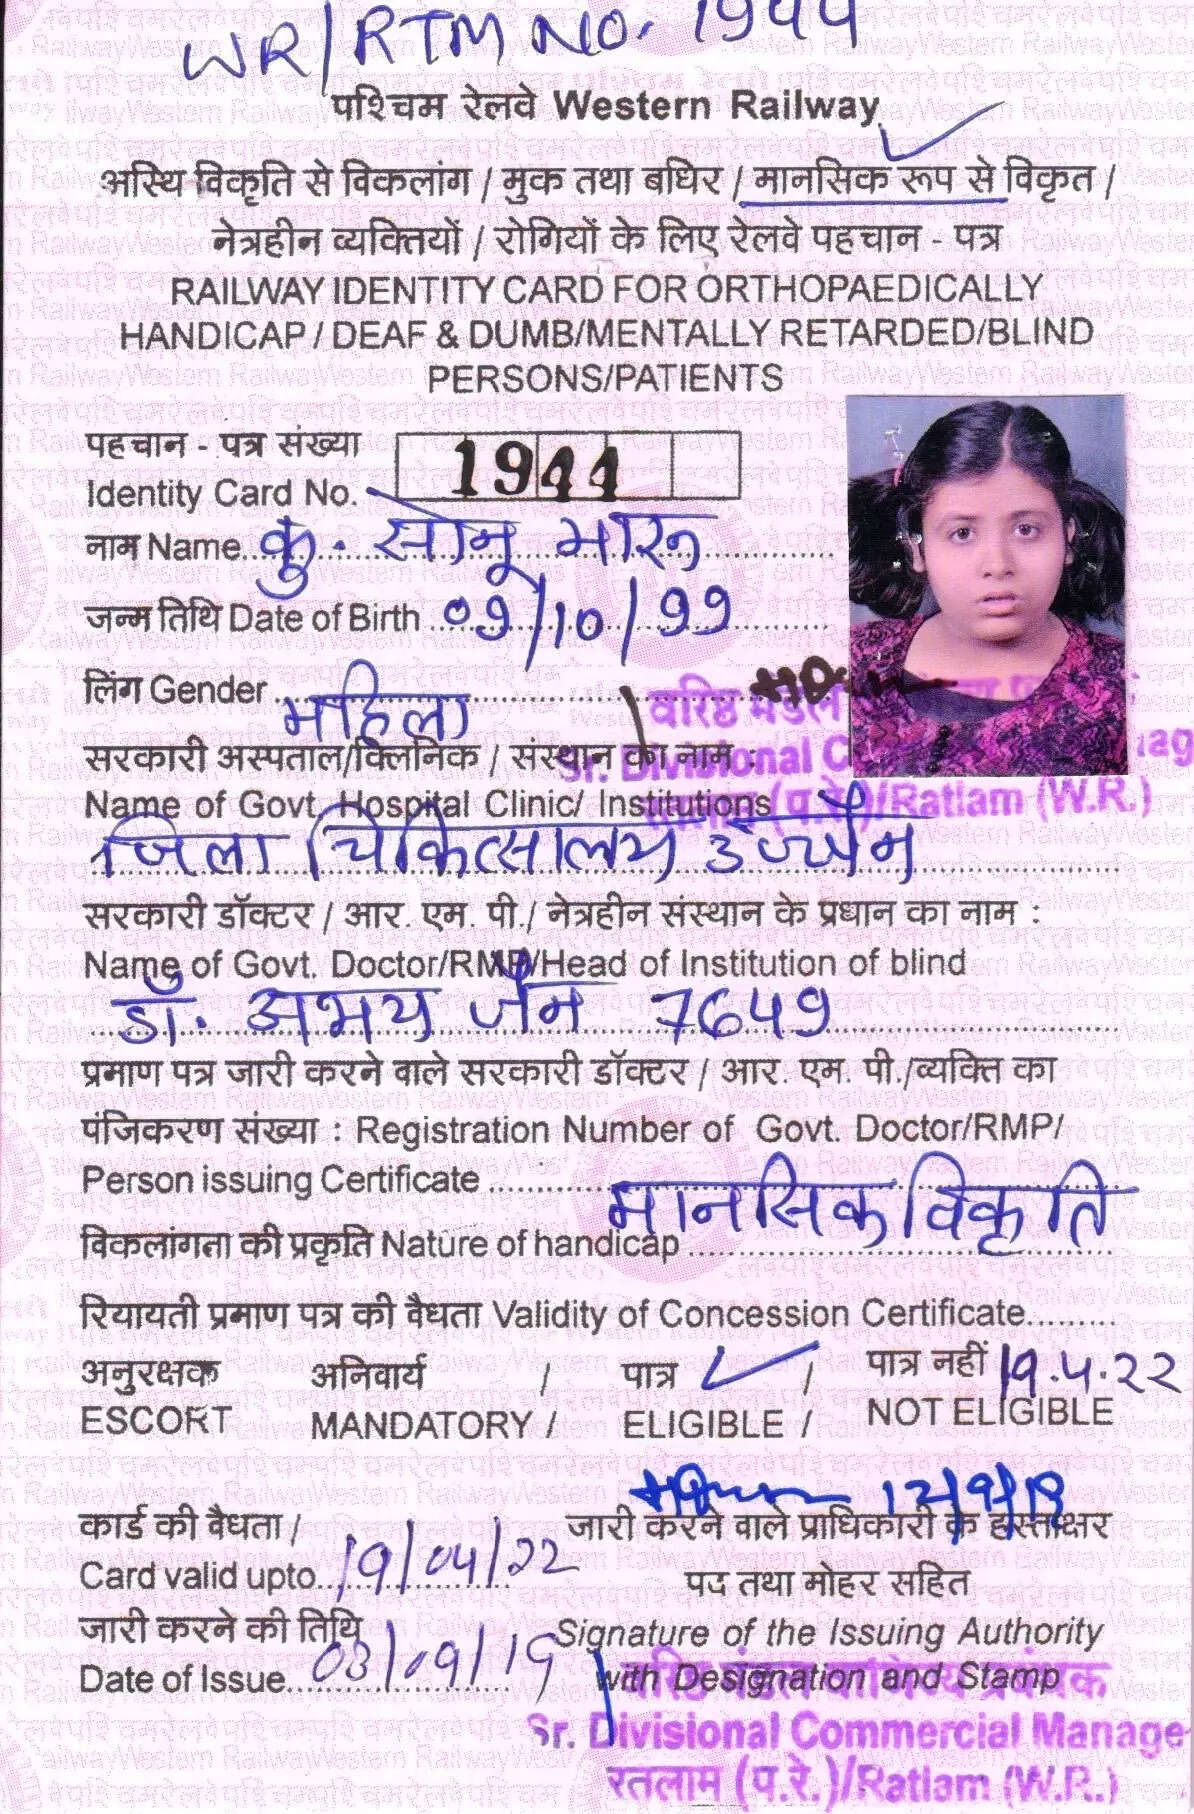 WR/RTM NO. 1944
पश्चिम रेलवे Western Railway
अस्थि विकृति से विकलांग / मुक तथा बधिर / मानसिक रूप से विकृत /
नेत्रहीन व्यक्तियों / रोगियों के लिए रेलवे पहचान - पत्र
RAILWAY IDENTITY CARD FOR ORTHOPAEDICALLY
HANDICAP / DEAF & DUMB/MENTALLY RETARDED/BLIND
PERSONS/PATIENTS
पहचान - पत्र संख्या
Identity Card No. 1944
नाम Name कु. सोनू मारू
जन्म तिथि Date of Birth 09/10/99
लिंग Gender महिला
वरिष्ठ मंडल
सरकारी अस्पताल/क्लिनिक / संस्थान का नाम :
Sr. Divisional
Name of Govt. Hospital Clinic/ Institutions
(प.रे.)/Ratlam (W.R.)
जिला चिकित्सालय उज्जैन
सरकारी डॉक्टर / आर. एम. पी./ नेत्रहीन संस्थान के प्रधान का नाम :
Name of Govt. Doctor/RMP/Head of Institution of blind
डॉ. अभय जैन 7649
प्रमाण पत्र जारी करने वाले सरकारी डॉक्टर / आर. एम. पी./व्यक्ति का
पंजिकरण संख्या : Registration Number of Govt. Doctor/RMP/
Person issuing Certificate
विकलांगता की प्रकृति Nature of handicap मानसिक विकृति
रियायती प्रमाण पत्र की वैधता Validity of Concession Certificate 19.4.22
अनुरक्षक अनिवार्य / पात्र / पात्र नहीं
ESCORT MANDATORY / ELIGIBLE / NOT ELIGIBLE
कार्ड की वैधता / जारी करने वाले प्राधिकारी के हस्ताक्षर
Card valid upto 19/04/22 पद तथा मोहर सहित
जारी करने की तिथि Signature of the Issuing Authority
Date of Issue 03/09/19 with Designation and Stamp
वरिष्ठ मंडल वाणिज्य प्रबंधक
Sr. Divisional Commercial Manage
रतलाम (प.रे.)/Ratlam (W.R.)